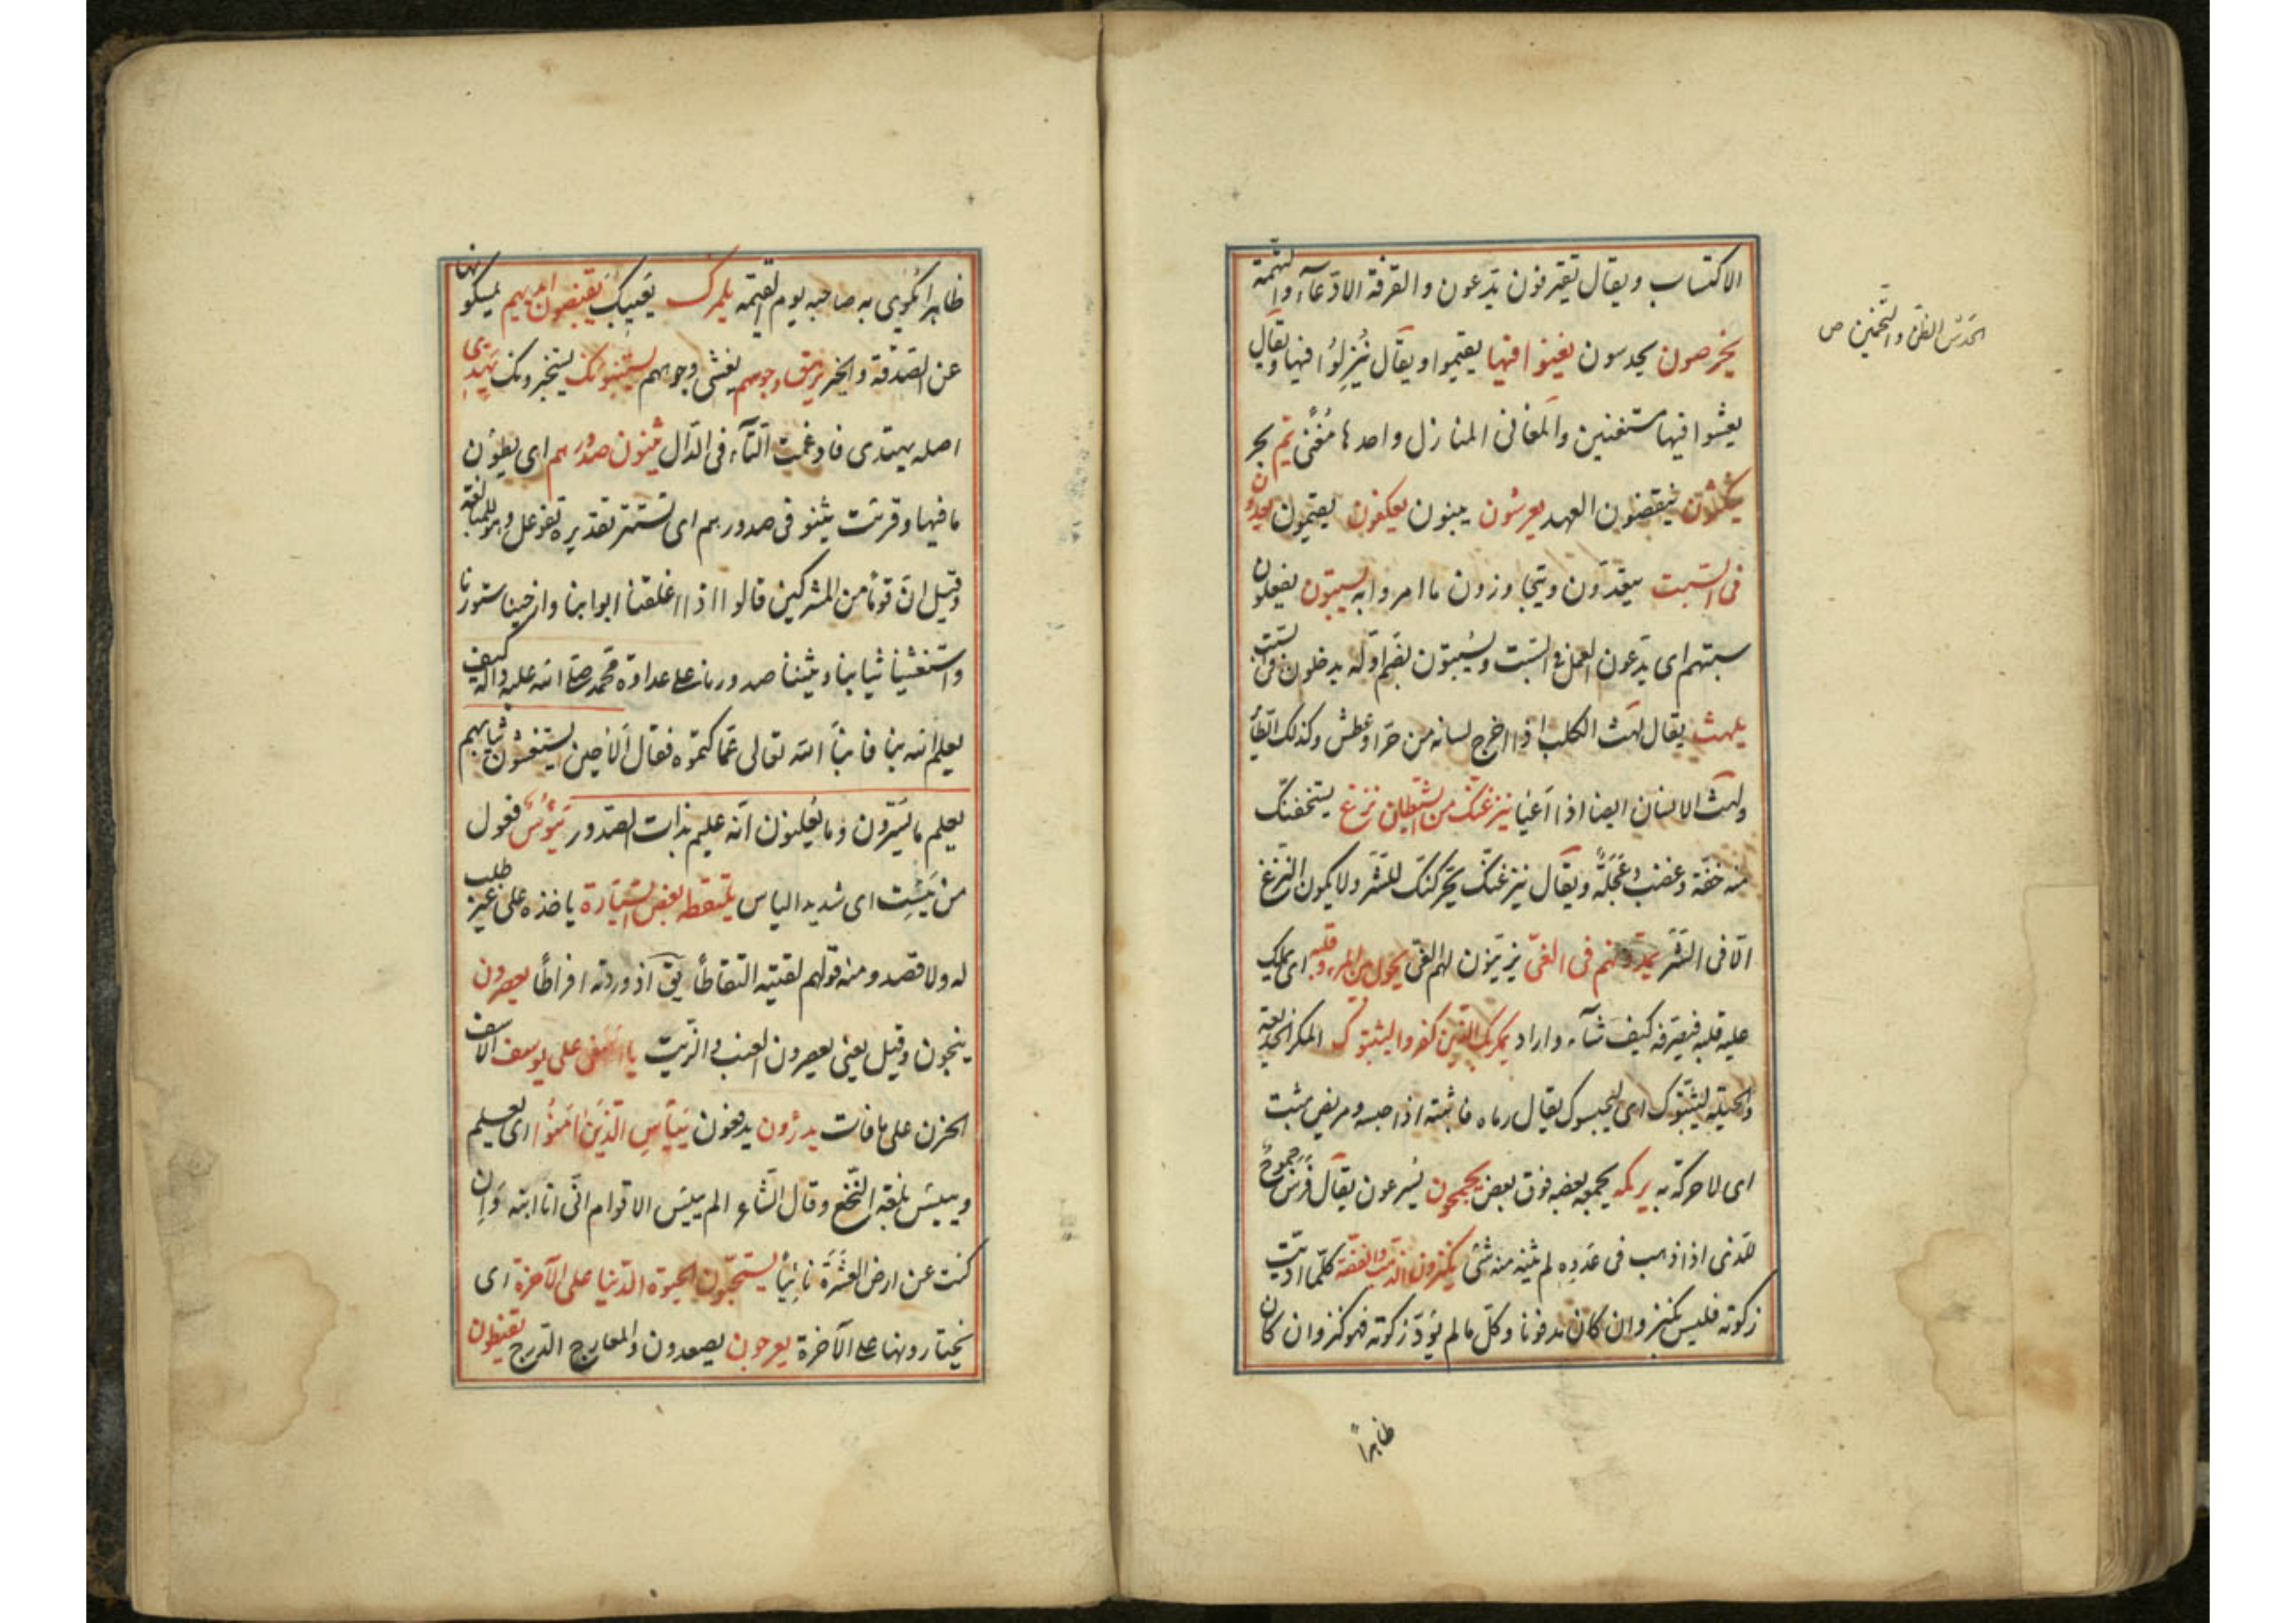 الاكتساب ويقال يقترفون يدّعون والقرفة الادّعاء والتهمة
الحدس الظنّ والتخمين ص
يخرصون يحدسون يغنوا فيها يقيموا ويقال يُنزلُوا فيها ويقال
يعيشوا فيها مستغنين والمغانى المنازل واحدها مَغنًى يَمّ بحر
ينكثون ينقضون العهد يعرشون يبنون يعكفون يقيمون يعدون
فى السّبت يتعدّون ويتجاوزون ما امروا به يسبتون يفعلون
سبتهم اى يدعون العمل فى السّبت ويُسبتون بضمّ اوّله يدخلون فى السّبت
يلهث يقال لهث الكلب اذا اخرج لسانه من حرّ او عطش وكذلك الطّائر
ولهث الانسان ايضا اذا اَعْيا ينزغنّك من الشّيطان نزغ يستخفنّك
منه خفّة وغضب وعَجَلَةٌ ويقال ينزغنّك يحرّكنّك للشّرّ ولا يكون النّزغ
الّا فى الشّرّ يمدّونهم فى الغىّ يزيّنون لهم الغىّ يحول بين المرء وقلبه اى يملك
عليه قلبه فيصرّفه كيف شاء واراد يمكر بك الّذين كفروا ليثبتوك المكر الخديعة
والحيلة ليثبتوك اى ليحبسوك يقال رماه فاثبته اذا حبسه ومريض مثبت
اى لا حركة به يركمه يجمعه بعضه فوق بعض يجمحون يُسرعون يقال فَرَسٌ جموحٌ
للّذى اذا ذهب فى عَدوه لم يثنه منه شئ يكنزون الذّهب والفضّة كلّما ادّيت
زكوته فليس بكنز وان كان مدفونا وكلّ ما لم يُؤدّ زكوته فهو كنز وان كان
ظاهراً
ظاهرا يُكوى به صاحبه يوم القيمة يلمزك يَعيبك يقبضون ايديهم يمسكونها
عن الصّدقة والخير يرهق وجوههم يغشى وجوههم يستنبئونك يستخبرونك يَهِدِّى
اصله يهتدى فادغمت التّاء فى الدّال يثنون صدورهم اى يطوُن
ما فيها وقرئت يثنونى صدورهم اى تستتر تقديره تفوعل وهو للمبالغة
وقيل انّ قومًا من المشركين قالوا اذا اغلقنا ابوابنا وارخينا ستورنا
واستغشينا ثيابنا وثنينا صدورنا على عداوة محمّد صلى الله عليه واله كيف
يعلم الله بنا فانبأ الله تعالى عمّا كتموه فقال اَلا حين يستغشون ثيابهم
يعلم ما يُسّرون وما يُعلنون انّه عليم بذات الصّدور يَؤُسٌ فعول
من يَئِست اى شديد الياس يلتقطه بعض السّيّارة ياخذه على غير طلب
له ولا قصد ومنه قولهم لقيته التقاطًا يق اذ وردته افراطًا يعصرون
ينجون وقيل يعنى يعصرون العنب والزّيت يا اسفى على يوسف الاسف
الحزن على ما فات يدرؤن يدفعون يَيأسِ الّذينَ امَنُوا اى يعلم
وييئس بلغة النّخع وقال الشّاعر الم ييئس الاقوام انّى انا ابنه وَاِن
كنت عن ارض العَشيرَة نائيًا يستحبّون الحيوة الدّنيا على الآخرة اى
يختارونها على الآخرة يعرجون يصعدون والمعارج الدّرج يقنطون